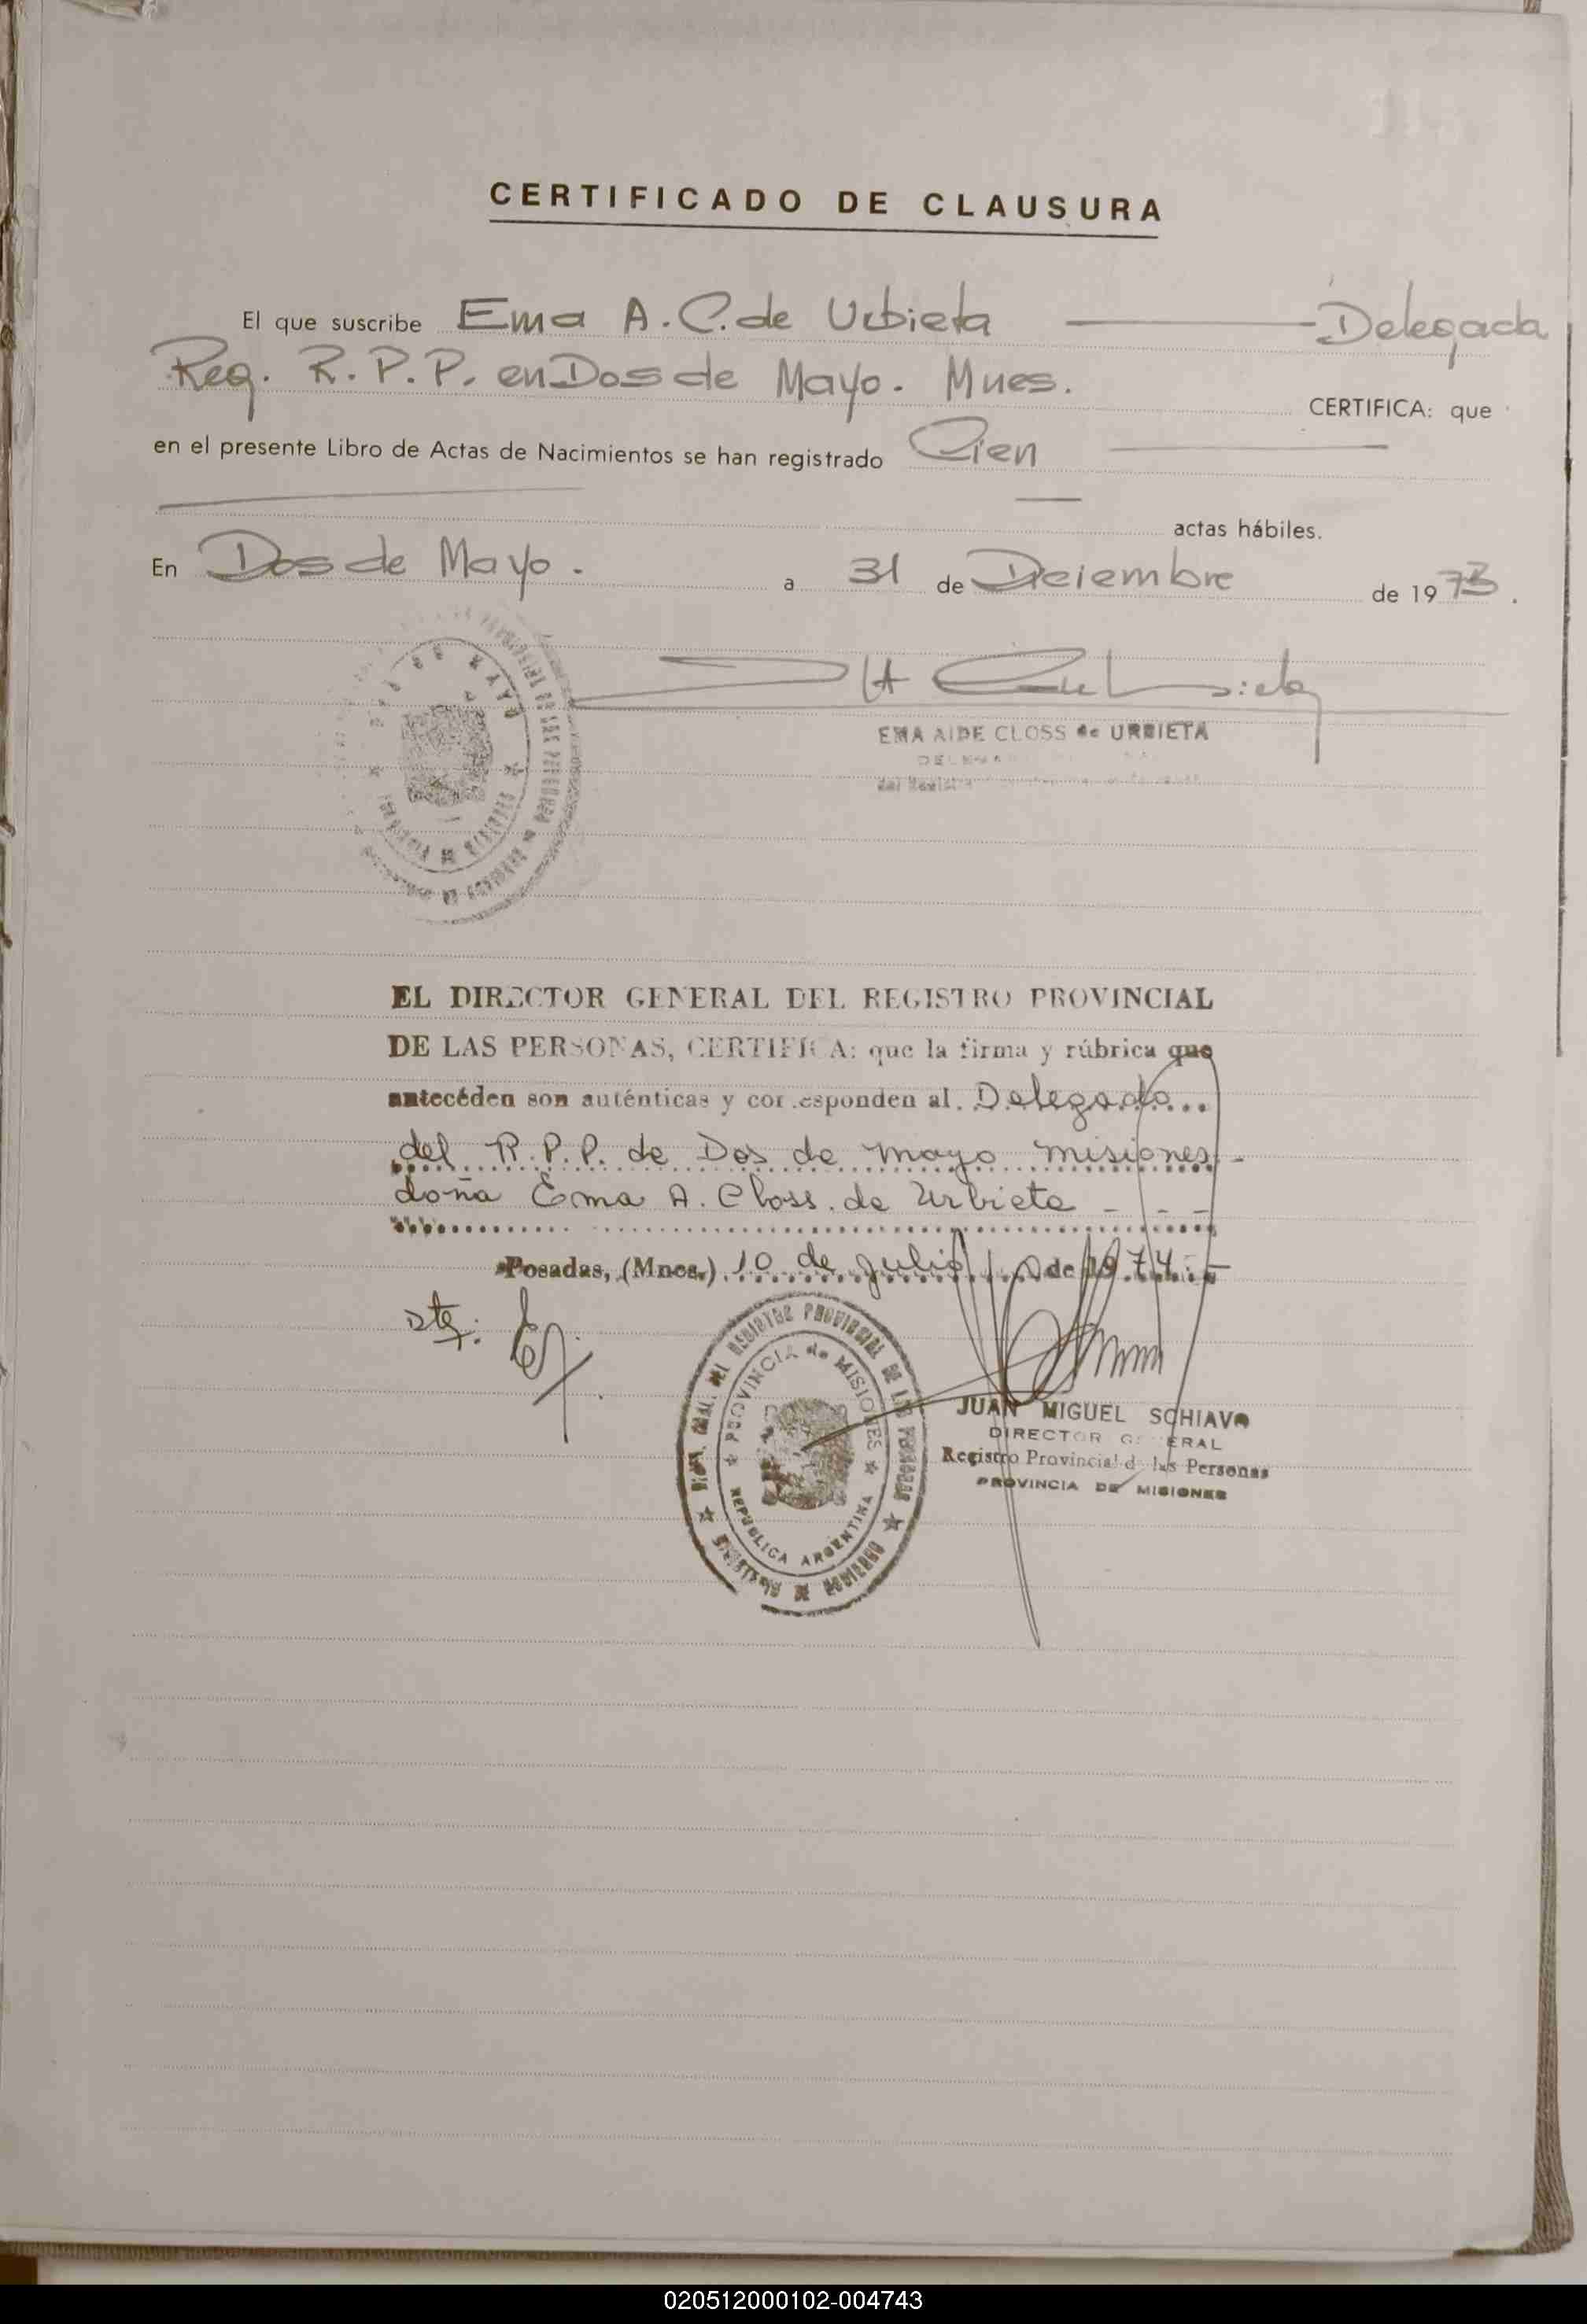 CERTIFICADO DE CLAUSURA
El que suscribe Ema A. C. de Urbieta Delegada
Reg. R. P. P. en Dos de Mayo. Mnes. CERTIFICA: que
en el presente Libro de Actas de Nacimientos se han registrado Cien
actas hábiles.
En Dos de Mayo. a 31 de Diciembre de 1973.
EMA AIDE CLOSS de URBIETA
EL DIRECTOR GENERAL DEL REGISTRO PROVINCIAL
DE LAS PERSONAS, CERTIFICA: que la firma y rúbrica que
antecéden son auténticas y corresponden al. Delegado...
del R. P. P. de Dos de mayo misiones -
doña Ema A. Closs. de Urbieta - - -
Posadas, (Mnes.) 10 de julio de 1974.-
DIRON. GRAL. DEL REGISTRO PROVINCIAL DE LAS PERSONAS
PROVINCIA de MISIONES
REPUBLICA ARGENTINA
MINISTERIO DE GOBIERNO
JUAN MIGUEL SCHIAVO
DIRECTOR GENERAL
Registro Provincial de las Personas
PROVINCIA DE MISIONES
020512000102-004743